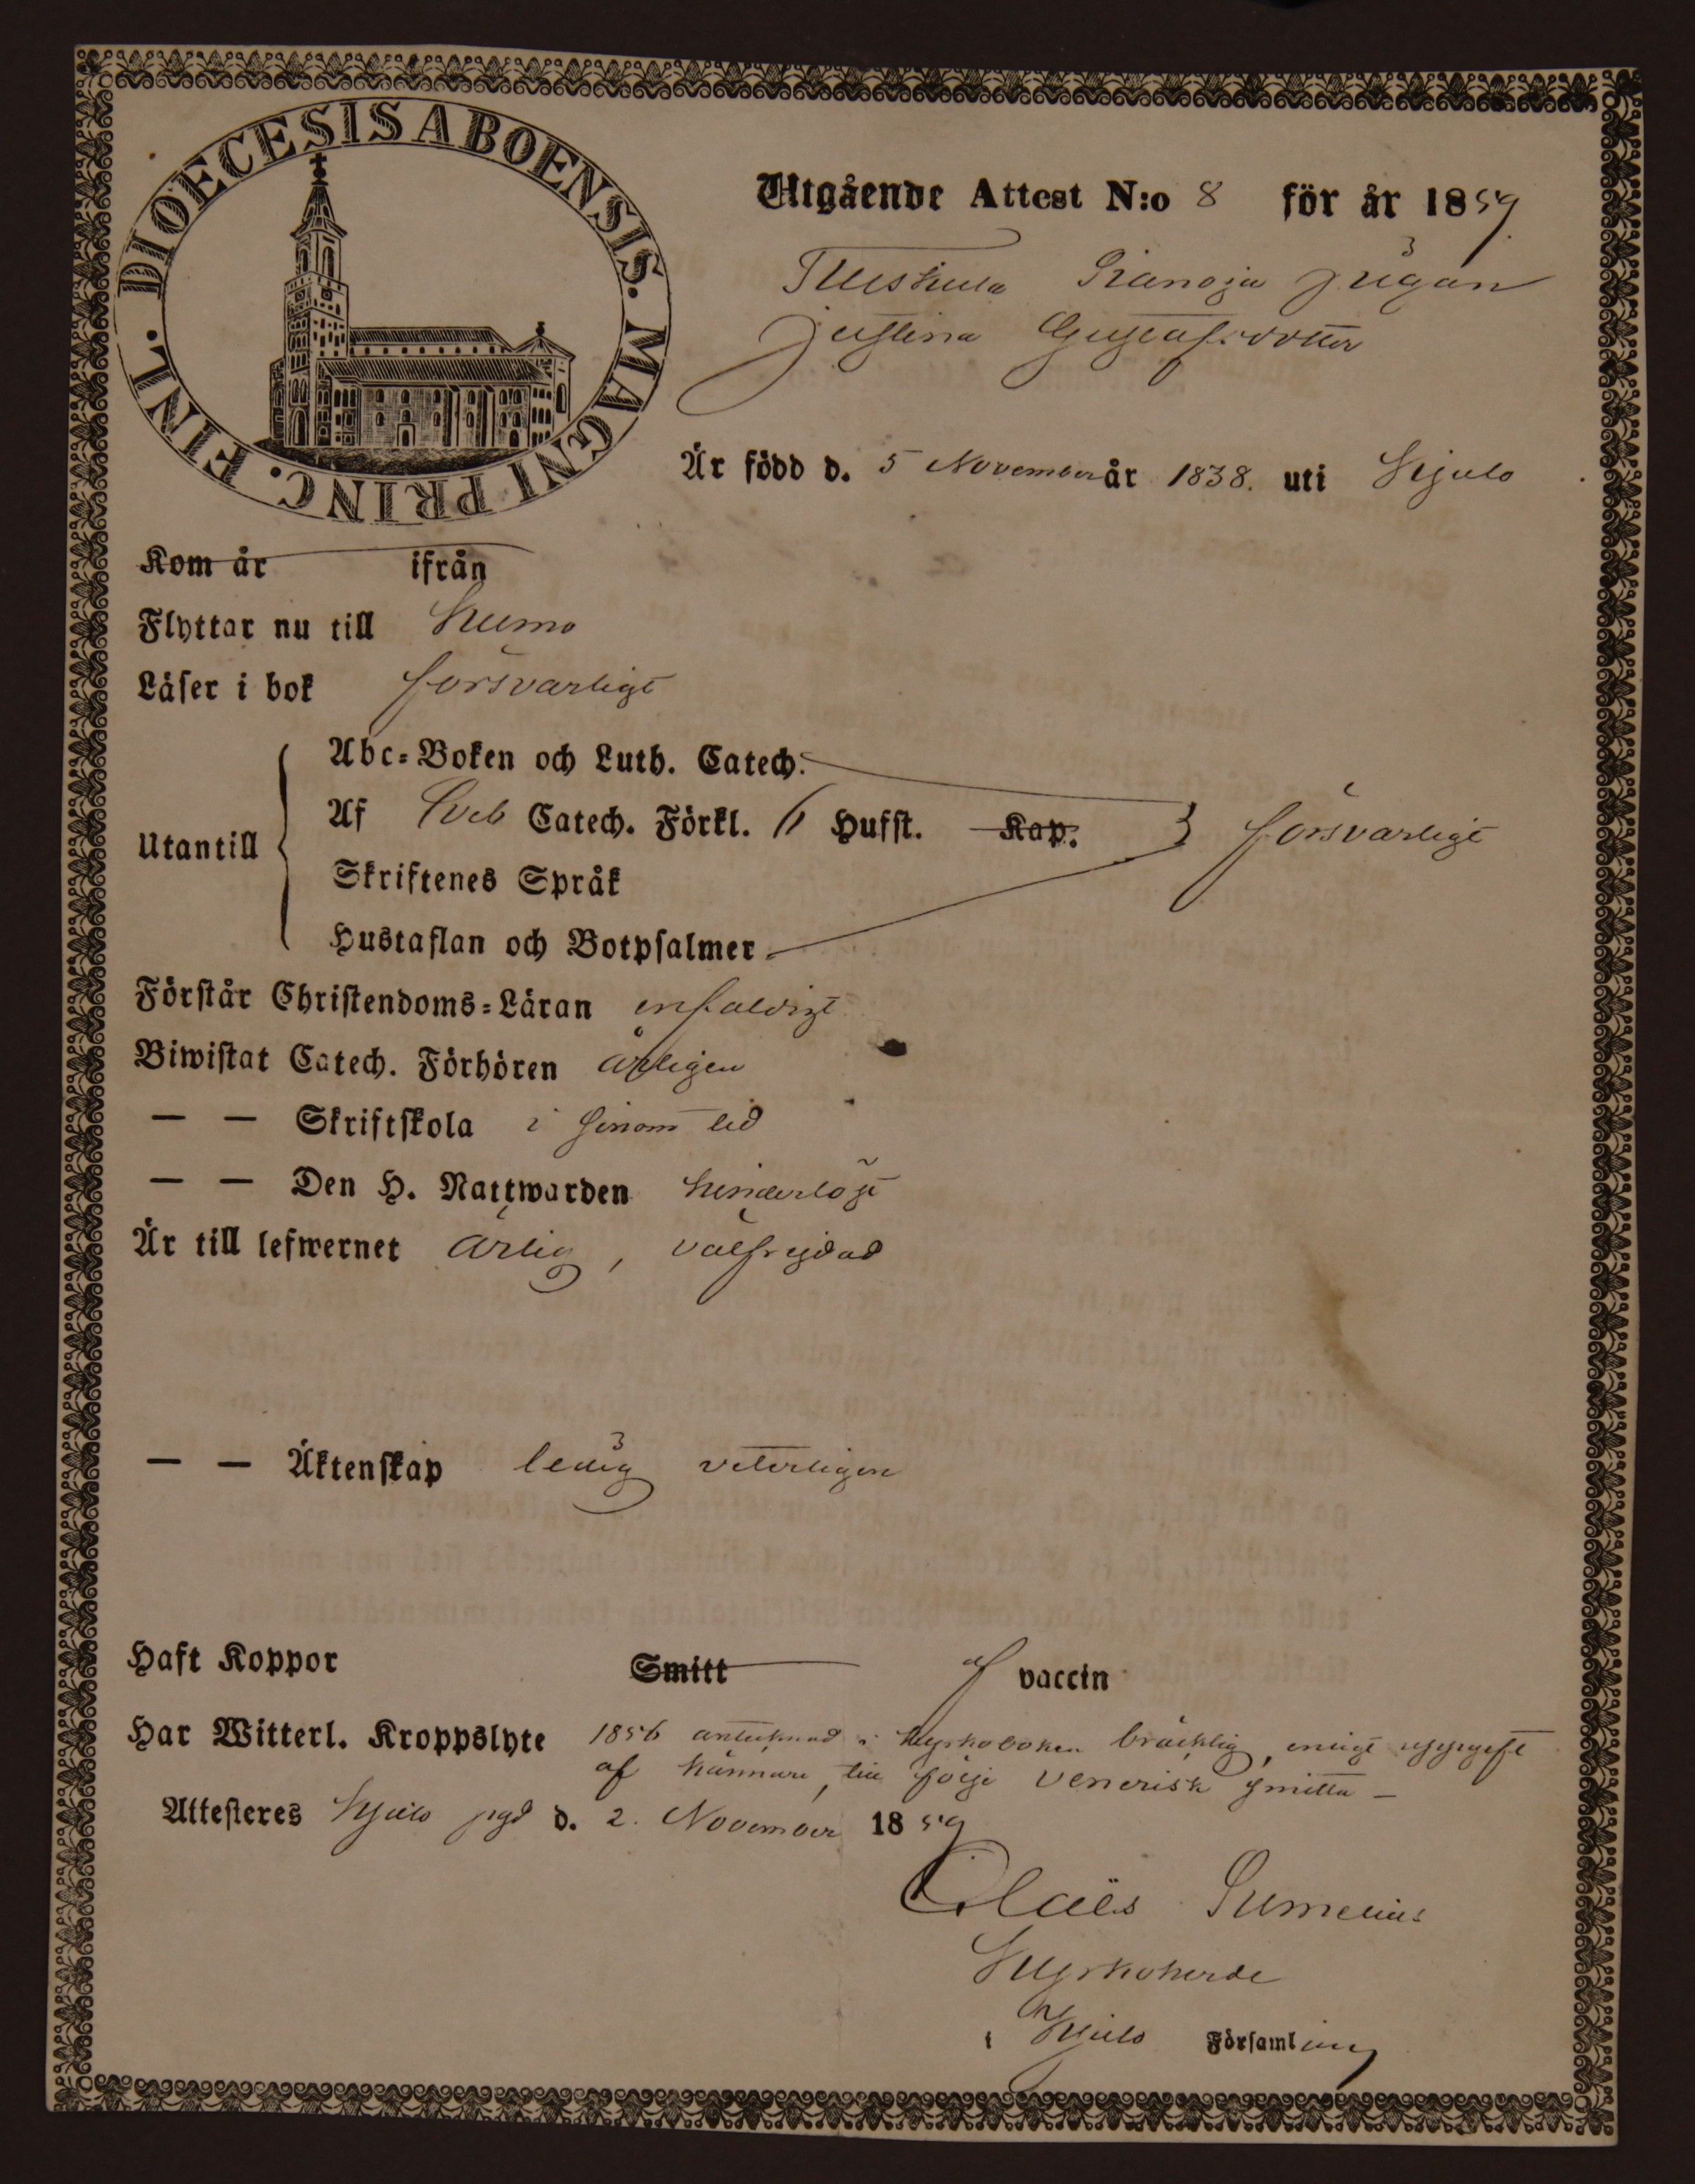 DIOECESIS ABOENSIS. MAGNI PRINC. FINL.
Utgående Attest N:o 8 för år 1859
Pigan
Justina Gustafsdotter
Är född d. 5 November år 1838. uti Kjulo
Kom år ifrån
Flyttar nu till Kumo
Läser i bok försvarligt
Utantill
Abc-Boken och Luth. Catech.
Af Sveb Catech. Förkl. 6 Hufst. Kap. försvarligt
Skriftenes Språk
Hustaflan och Botpsalmer
Förstår Christendoms-Läran enfaldigt
Biwistat Catech. Förhören årligen
— — Skriftskola i sinom tid
— — Den H. Nattwarden hinderlöst
Är till lefwernet ärlig, välfrejdad
— — Äktenskap ledig veterligen
Haft Koppor Smitt af vaccin
Har Witterl. Kroppslyte 1856 antecknad i kyrkoboken bräcklig, enligt uppgift
af kännare, till följe venerisk smitta —
Attesteres Kjulo pgd d. 2. November 1859
Claës Sumelius
Kyrkoherde
i Kjulo Församling